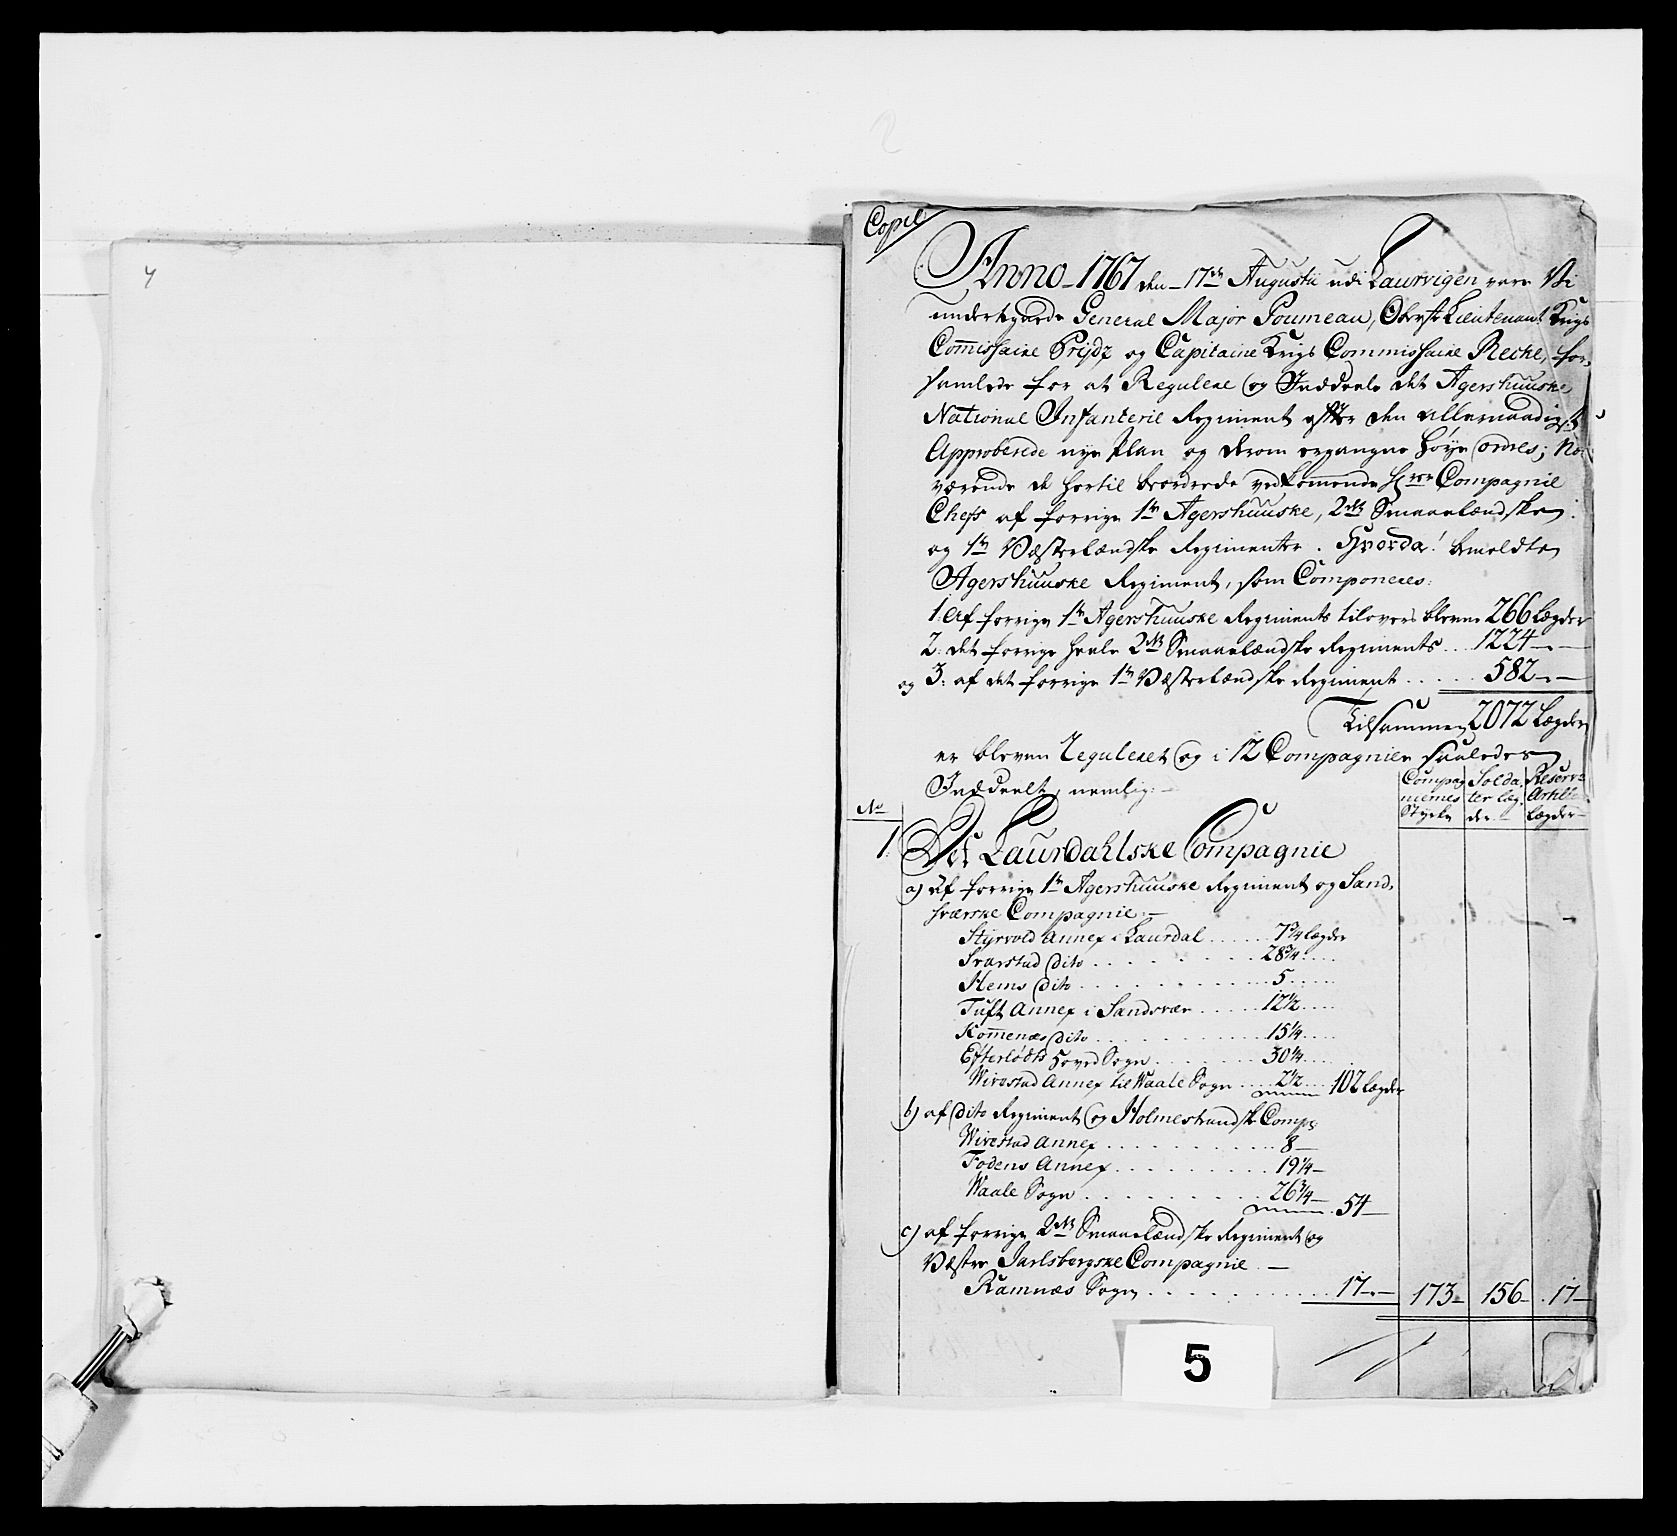 4
Copie
Anno 1767 den 17de Augustii udi Laurvigen vare Vi
undertegnede General Major Poumeau, Oberste Lieutenant Krigs
Commissaire Frijdz og Capitaine Krigs Commissaire Recke, for-
samlede for at Regulere og Inddeele det Agershuuske
National Infanterie Regiment efter den allernaadigst
Approberede nye Plan og derom ergangne høye ordres; Nær-
værende de hertil beordrede vedkommende Hrrer Compagnie
Chefs af forrige 1te Agershuuske, 2det Smaalændske
og 1te Væsterlændske Regimenter. Hvorda! bemeldte
Agershuuske Regiment, som Componeres:
1. Af forrige 1te Agershuuske Regiments tilovers blevne 266 Lægder
2: det forrige heele 2det Smaalændske Regiments .. 1224 —
og 3: af det forrige 1te Væsterlændske Regiment ..... 582 —
Tilsammen 2072 Lægder
er bleven Reguleret og i 12 Compagnier saaledes
Inddeelt, nemlig: —
No
Compag
niernes
Styrke
Solda
ter læg
der
Reserve
Lægder
1.
Det Laurdahlske Compagnie
a) af forrige 1te Agershuuske Regiment og Sand-
sværske Compagnie: —
Styrvold Annex i Laurdal ..... 7 3/4 lægder
Svarstad Dito ......... 28 3/4 ....
Hems Dito .......... 5 .....
Tuft Annex i Sandsvær ..... 12 1/2 ....
Kommenæs Dito .......... 15 1/4 ....
Efterlødts Hoved Sogn ....... 30 1/4 ....
Wivestad Annex til Waale Sogn .... 2 1/2 ... 102 lægder
b) af Dito Regiment og Holmestrandske Comp:
Wivestad Annex .......... 8 —
Fodens Annex ......... 19 1/4 —
Waale Sogn ......... 26 3/4 — 54 —
c) af forrige 2det Smaalændske Regiment og
Væstre Jarlsbergske Compagnie —
Ramnæs Sogn ........... 17 — 173 — 156 — 17 —
5